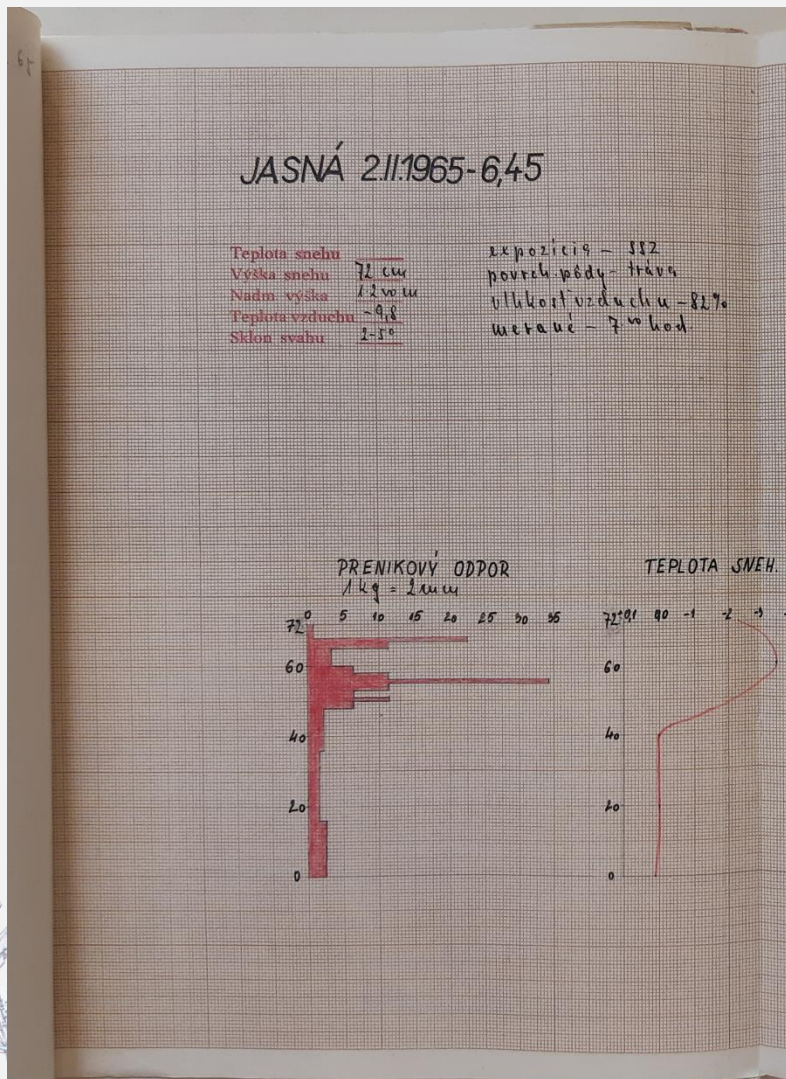 JASNÁ 2.II.1965-6,45
Teplota snehu
Výška snehu 72 cm
Nadm. výška 1200 m
Teplota vzduchu -9,8
Sklon svahu 2-5°
expozícia - SSZ
povrch. pôdy - tráva
vlhkosť vzduchu - 82%
merané - 7⁰⁰ hod.
PRENIKOVÝ ODPOR
1 kg = 2 mm
0 5 10 15 20 25 30 35
72
60
40
20
0
TEPLOTA SNEH.
72 +0,1 0,0 -1 -2 -3
60
40
20
0